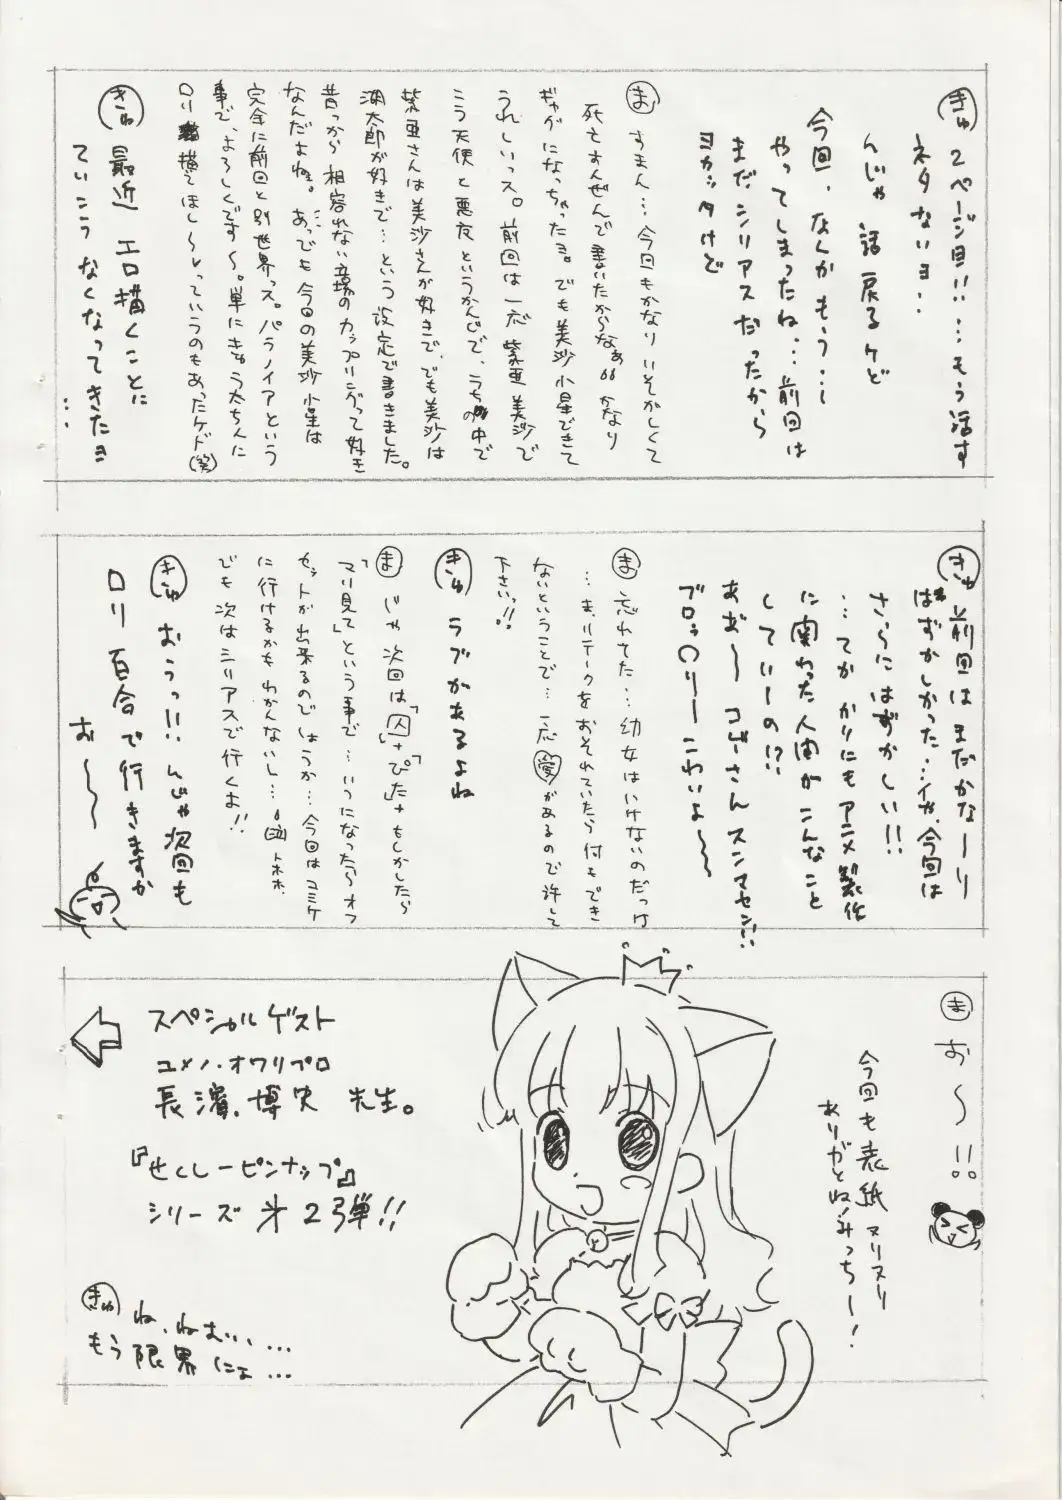 きゅ 2ページ目!!…もう話す
ネタないヨ…
んじゃ 話 戻るケど
今回、なんかもう…
やってしまったね…前回は
まだシリアスだったから
ヨカッタけど
ま すまん… 今回もかなりいそがしくて
死すんぜんで書いたからなぁ かなり
ギャグになっちゃったヨ。でも美沙小星できて
うれしいっス。前回は一応 紫亜 美沙で
こう天使と悪友というかんじで、うちの中で
紫亜さんは美沙さんが好きで、でも美沙は
湖太郎が好きで…という設定で書きました。
昔っから 相容れない立場のカップリングって好き
なんだよねぇ。あっでも今回の美沙小星は
完全に前回と別世界っス。パラノイアという
事で、よろしくです〜。単にきゅう太ちんに
ロリ描いてほし〜っていうのもあったケド(笑)
きゅ 最近 エロ描くことに
ていこう なくなってきたヨ
…
きゅ 前回は まだかなーり
はずかしかった…イヤ、今回は
さらにはずかしい!!
…てか かりにもアニメ製作
に関わった人間がこんなこと
していーの!?
あぁ〜 コゲさんスンマセン!!
ブロッ〇リー こわいよ〜
ま 忘れてた… 幼女はいけないのだっけ
…ま、リテークをおそれていたら何もでき
ないということで… 一応 愛 があるので許して
下さい!!
きゅ ラブがあるよね
ま じゃ 次回は「囚」+「ぴた」+もしかしたら
「マリ見て」という事で…いつになったらオフ
セットが出来るのでしょうか… 今回はコミケ
に行けるかも わかんないし… トホホ.
でも 次はシリアスで行くよ!!
きゅ おうっ!! んじゃ次回も
ロリ 百合で行きますか
お〜〜
ま お〜!!
今回も表紙ヌリヌリ
ありがとね!みっちー!
スペシャルゲスト
ユメノ・オワリプロ
長濱.博史 先生。
『せくしーピンナップ』
シリーズ 㐧2弾!!
きゅ ね、ねむい、…
もう 限界 にょ…